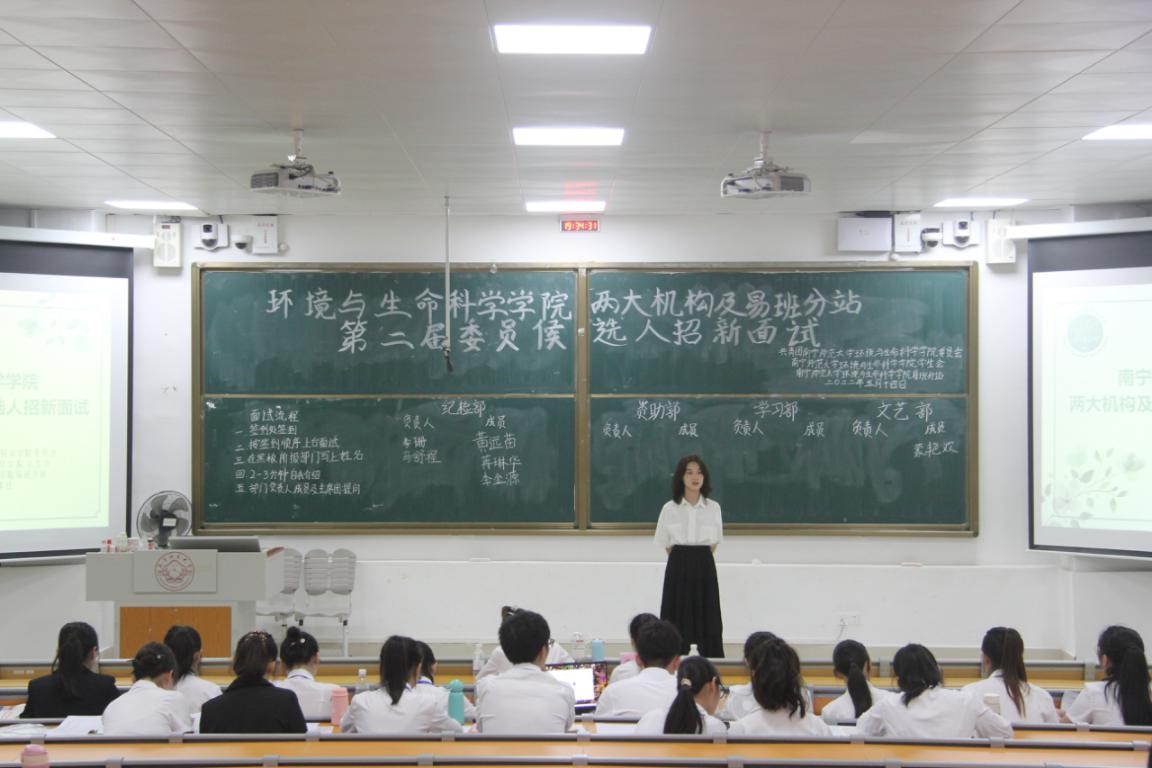 19:34:31
环境与生命科学学院 两大机构及易班分站
第二届委员侯选人招新面试
共青团南宁师范大学环境与生命科学学院委员会
南宁师范大学环境与生命科学学院学生会
南宁师范大学环境与生命科学学院易班分站
二〇二二年五月十四日
面试流程
一 签到处签到
二 按签到顺序上台面试
三 在黑板 部门写上姓名
四 2-3分钟自我介绍
五 部门负责人成员及主席团提问
纪检部
负责人 成员
李珊 黄远苗
马舒程 蒋琳华
李金
资助部
负责人 成员
学习部
负责人 成员
文艺部
负责人 成员
蒙艳欢
学学院
选人招新面试
南宁
两大机构及